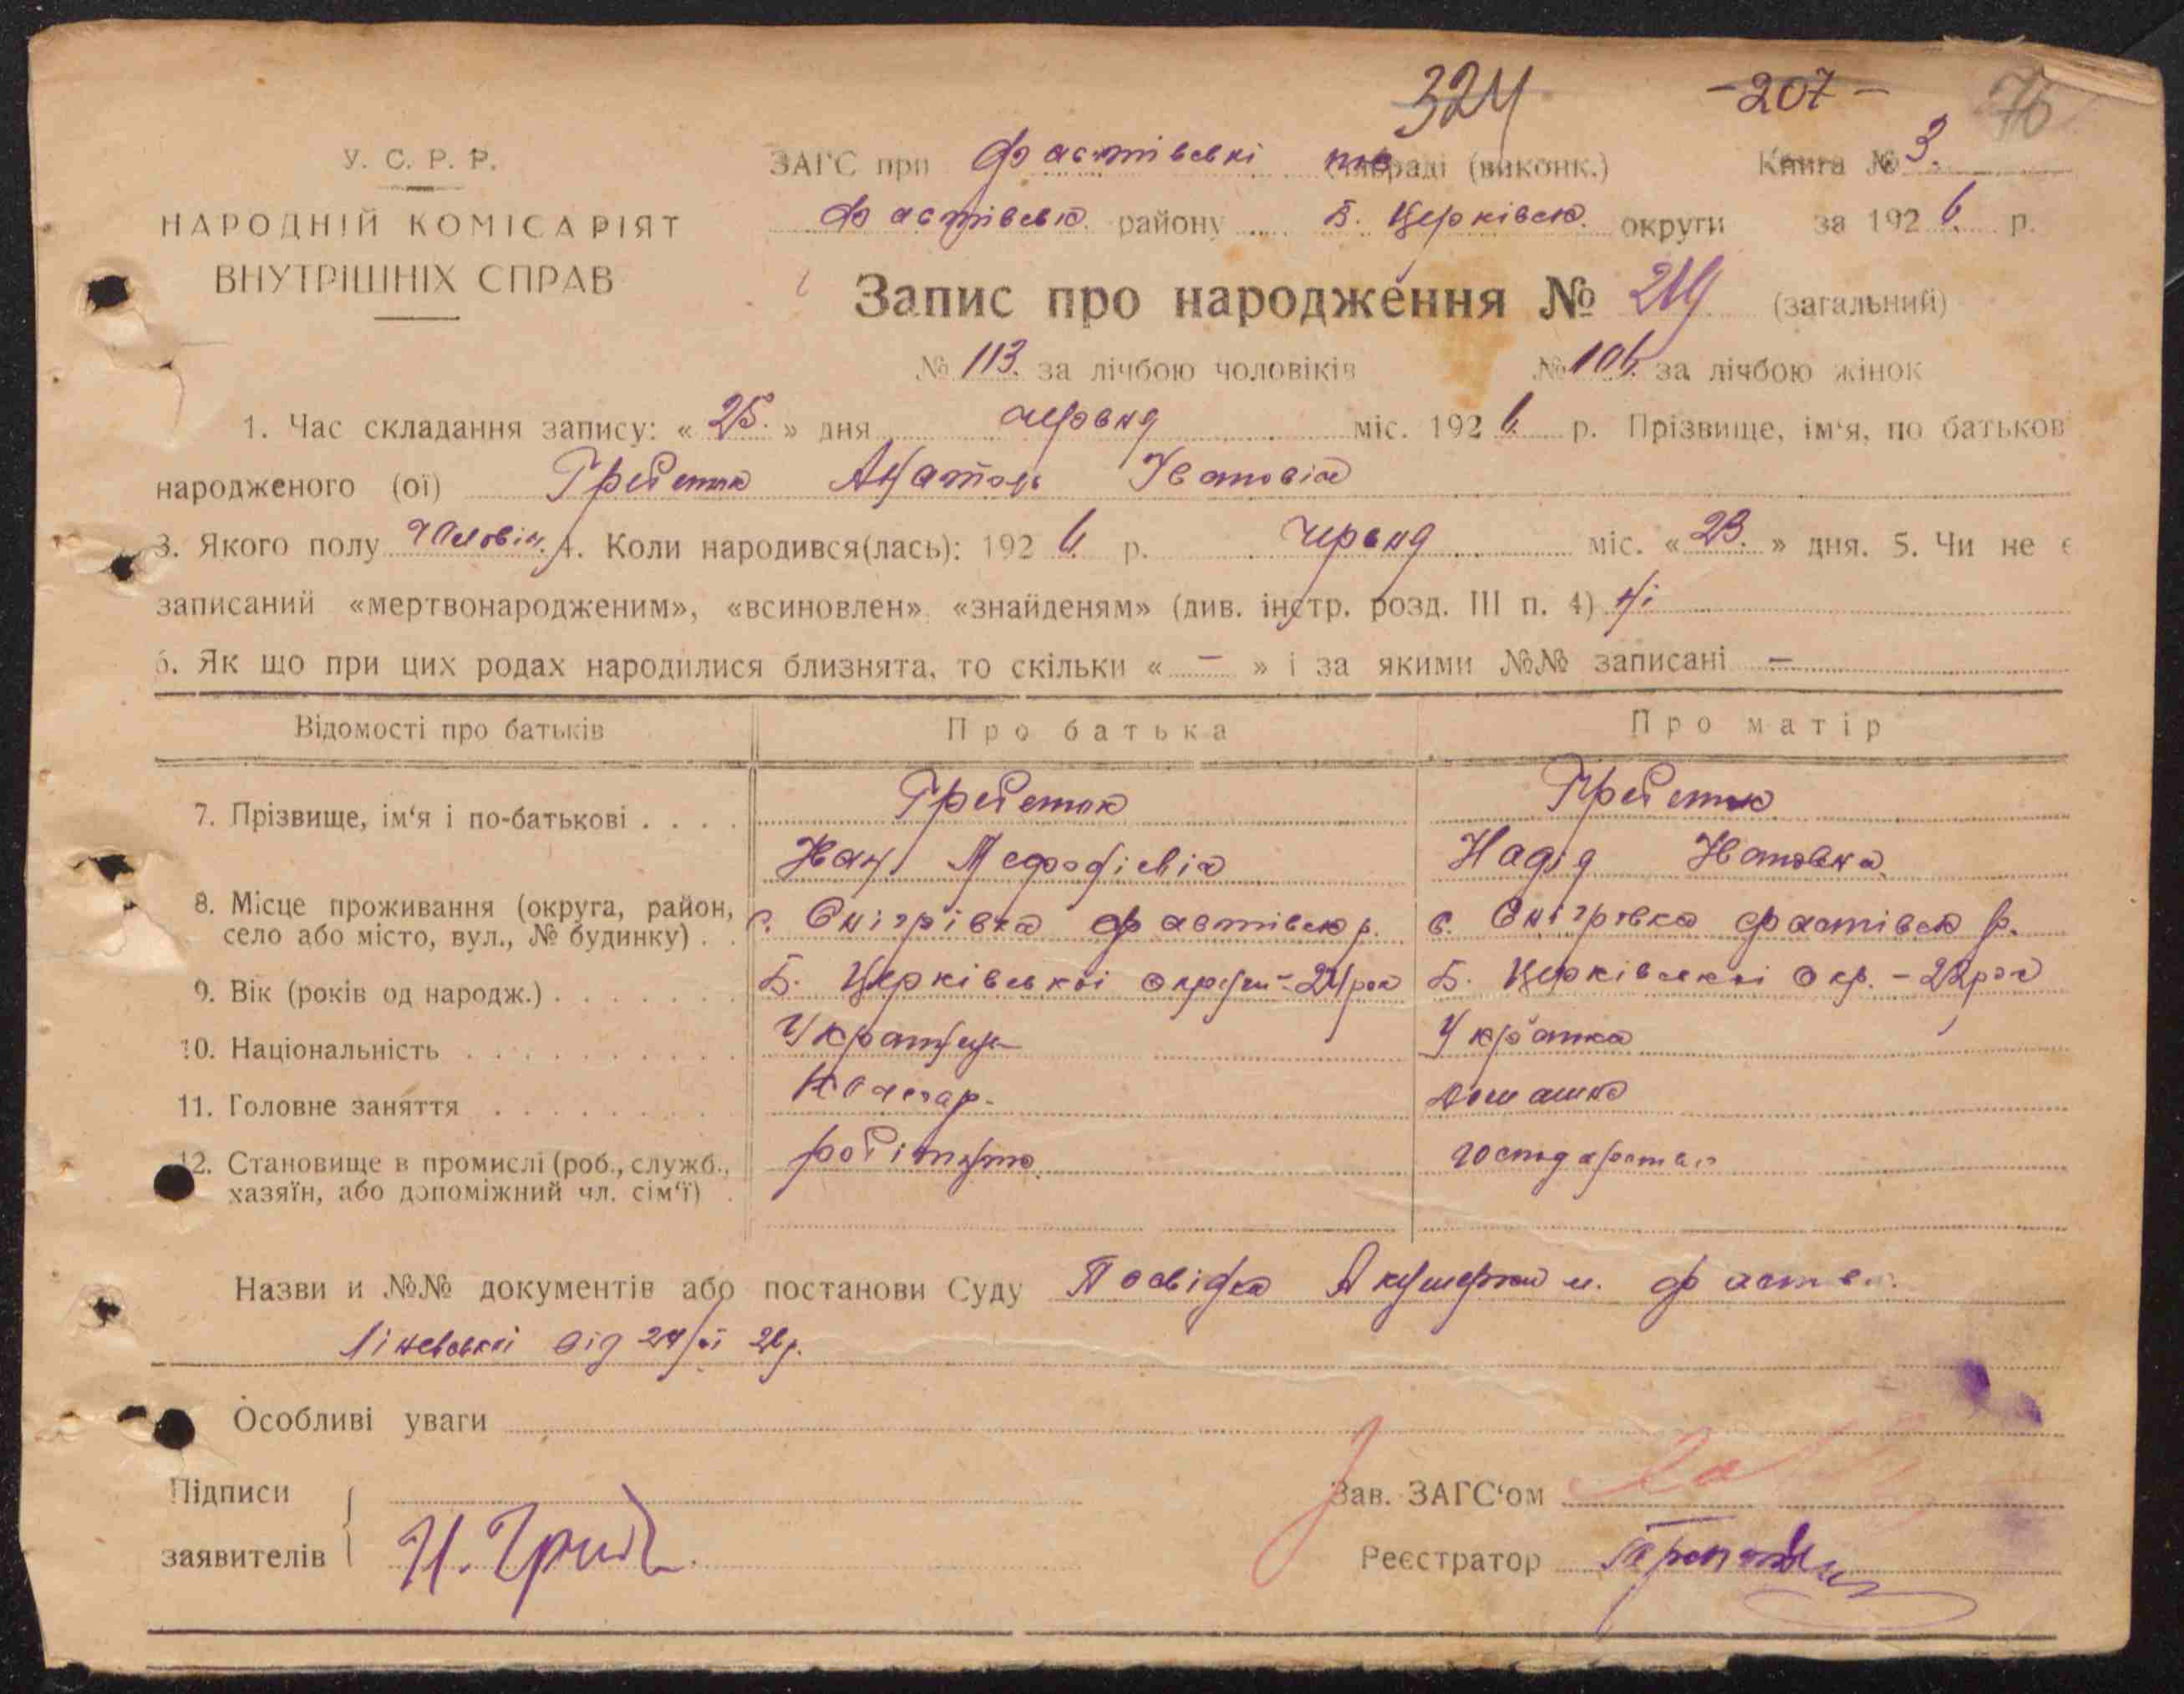 324 -207- 76
У. С. Р. Р.
ЗАГС при Фастівскі раді (виконк.) Книга № 3.
Фастівськ. району Б. Церківськ. округи за 1926 р.
НАРОДНІЙ КОМІСАРІЯТ
ВНУТРІШНІХ СПРАВ
Запис про народження № 219 (загальний)
№ 113. за лічбою чоловіків № 106. за лічбою жінок
1. Час складання запису: « 25. » дня червня міс. 1926. р. Прізвище, ім‘я, по батьков
народженого (ої) Гребенюк Анатоль Іванович
3. Якого полу Чоловіч. 4. Коли народився(лась): 1926 р. червня міс. « 23. » дня. 5. Чи не є
записаний «мертвонародженим», «всиновлен», «знайденям» (див. інстр. розд. III п. 4) ні
6. Як що при цих родах народилися близнята, то скільки « – » і за якими №№ записані –
Відомості про батьків Про батька Про матір
7. Прізвище, ім‘я і по-батькові . . . . Гребенюк Гребенюк
Іван Надія Івановна
8. Місце проживання (округа, район, с. Снігрівка Фастівськ р. с. Снігровка Фастівськ р.
село або місто, вул., № будинку) . .
9. Вік (років од народж.) . . . . . . . Б. Церківської округи - 24 рок Б. Церківської окр. - 22 рок
10. Національність . . . . . . . . . . Українец Українка
11. Головне заняття . . . . . . . . Кочегар. домашнє
12. Становище в промислі (роб., служб., робітник господарство
хазяїн, або допоміжний чл. сім‘ї) .
Назви и №№ документів або постанови Суду Посвідка Акушерки м. Фастова
Ліневської від 24/VI 26р.
Особливі уваги
Підписи
Зав. ЗАГС‘ом
заявителів И. Греб
Реєстратор